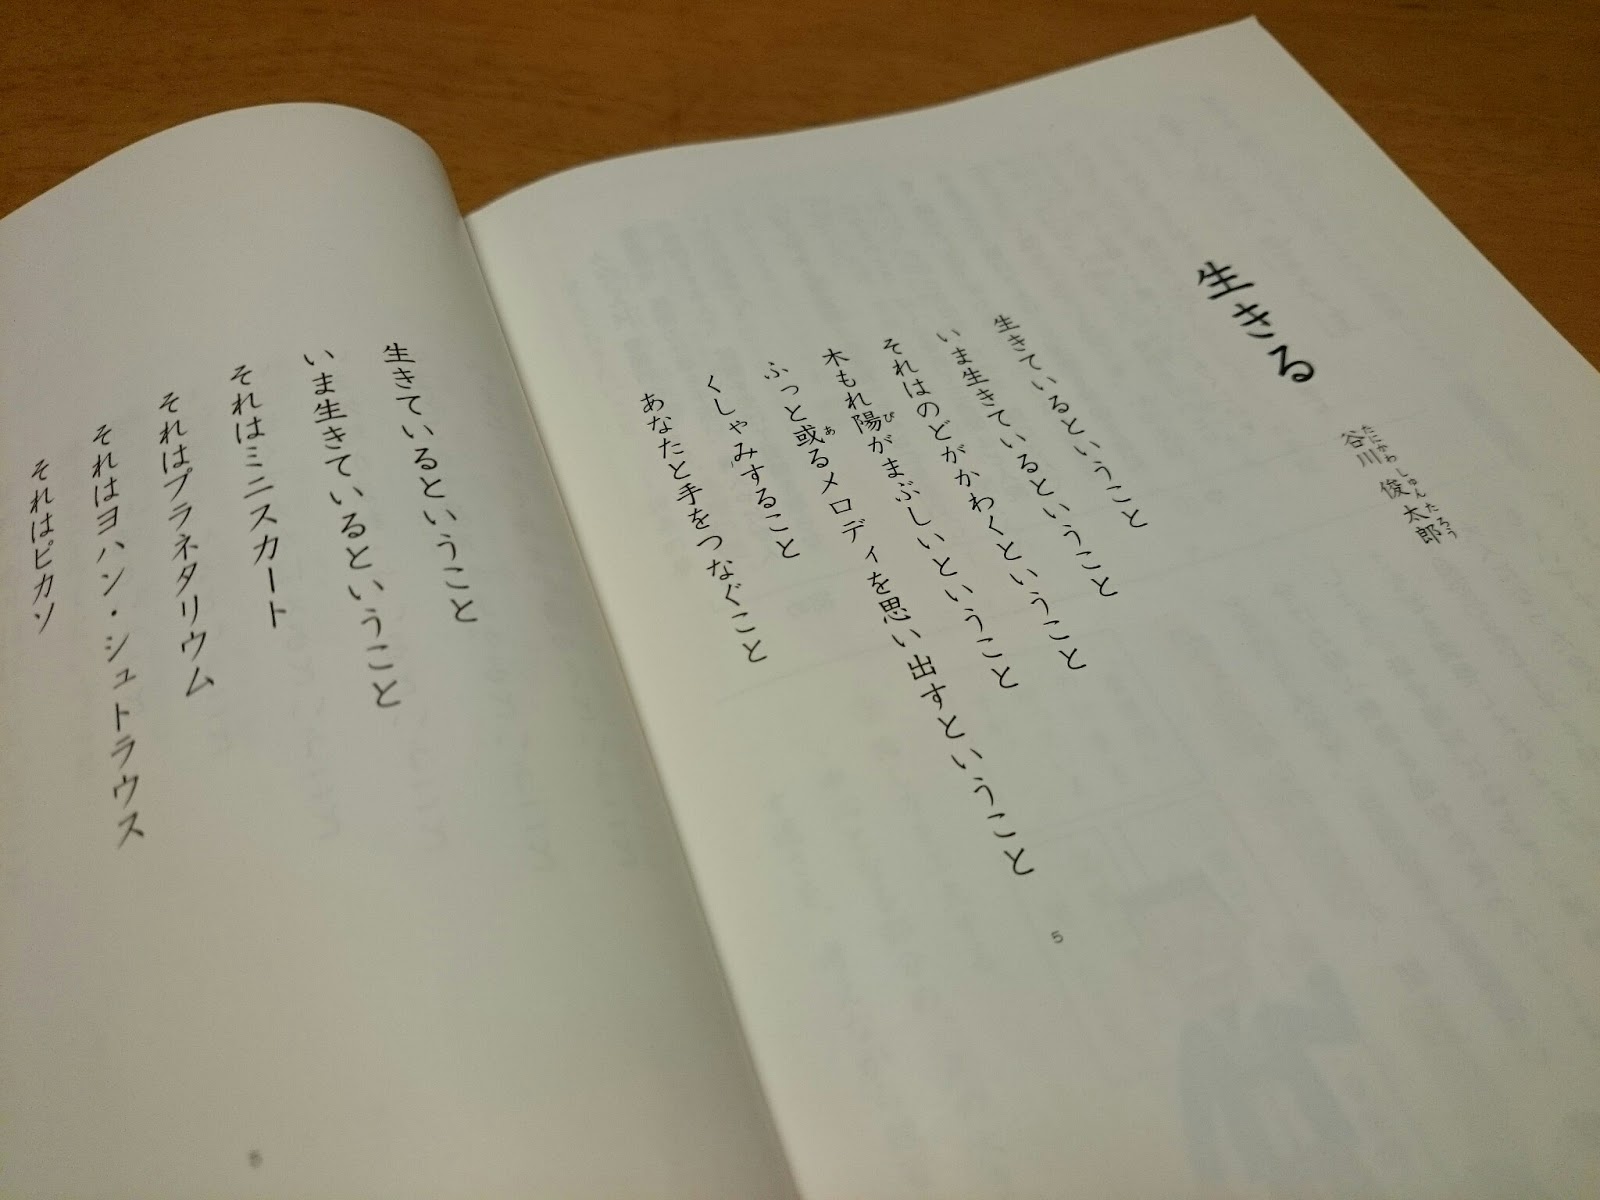 生きる
谷川 俊太郎
たにかわ しゅんたろう
生きているということ
いま生きているということ
それはのどがかわくということ
木もれ陽がまぶしいということ
び
ふっと或るメロディを思い出すということ
あ
くしゃみすること
あなたと手をつなぐこと
5
生きているということ
いま生きているということ
それはミニスカート
それはプラネタリウム
それはヨハン・シュトラウス
それはピカソ